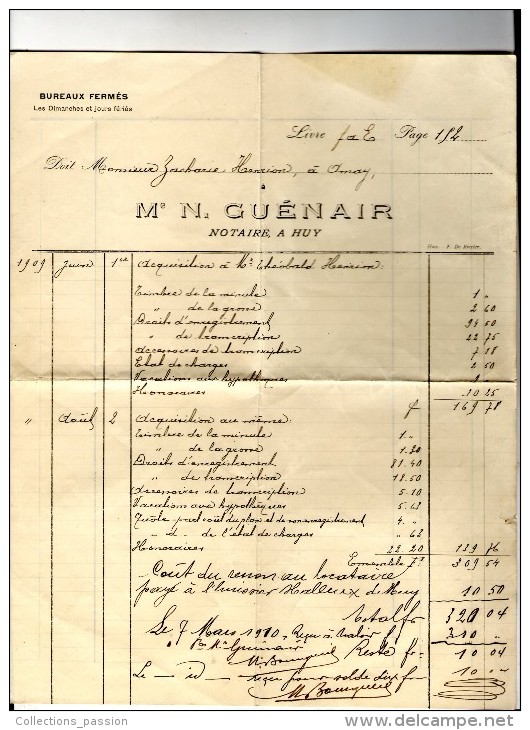 BUREAUX FERMÉS
Les Dimanches et jours fériés
Livre fa E Page 152
Doit Monsieur Zacharie Henrion, à Omay,
à
Me N. GUÉNAIR
NOTAIRE, A HUY
Huy. - F. De Ruyter.
1909 Juin 1er Acquisition à Mr Théobald Henrion:
Timbre de la minute 1 "
" de la grosse 2 60
Droits d'enregistrement 94 50
" de transcription 22 75
Accessoires de transcription 7 18
Etat de charges 2 50
Vacations aux hypothèques
Honoraires 10 25
f 169 78
" Août 2 Acquisition au même:
Timbre de la minute 1. "
" de la grosse 1.20
Droits d'enregistrement 81.40
" de transcription 18.50
Accessoires de transcription 5.10
Vacations aux hypothèques 5.13
Juste part coût du plan et de non enregistrement 4. "
" d. de l'état de charges " 62
Honoraires 22.20 139 76
Ensemble 309 54
Coût du renon au locataire
payé à l'huissier Halleux de Huy 10 50
Total fr 320 04
Le 7 Mars 1910, Reçu à valoir f 310 "
Reste fr 10 04
Le id reçu pour solde dix f 10
Collections_passion
www.delcampe.net